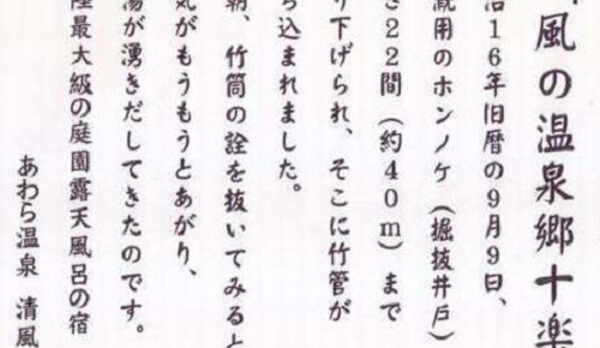 風の温泉郷十楽
治16年旧暦の9月9日、
漑用のホンノケ（掘抜井戸）
さ22間（約40m）まで
り下げられ、そこに竹管が
ち込まれました。
朝、竹筒の詮を抜いてみると
気がもうもうとあがり、
湯が湧きだしてきたのです。
陸最大級の庭園露天風呂の宿
あわら温泉 清風